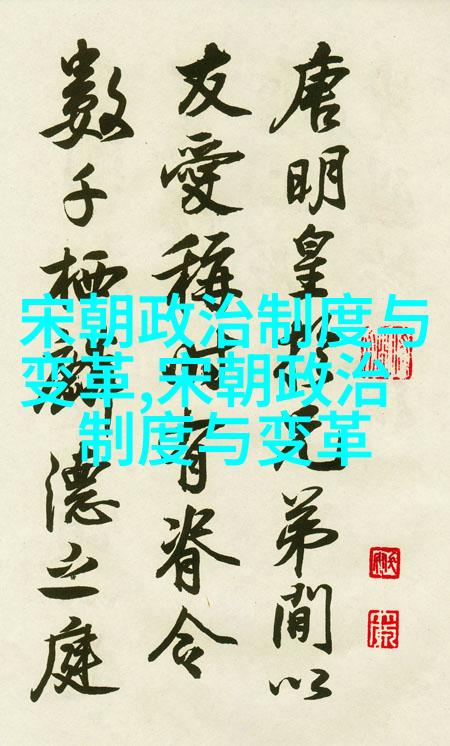 宋朝政治制度与
变革,宋朝政治
制度与变革
唐明皇於兄弟間以
友愛稱有脊令
數千栖麟德之庭